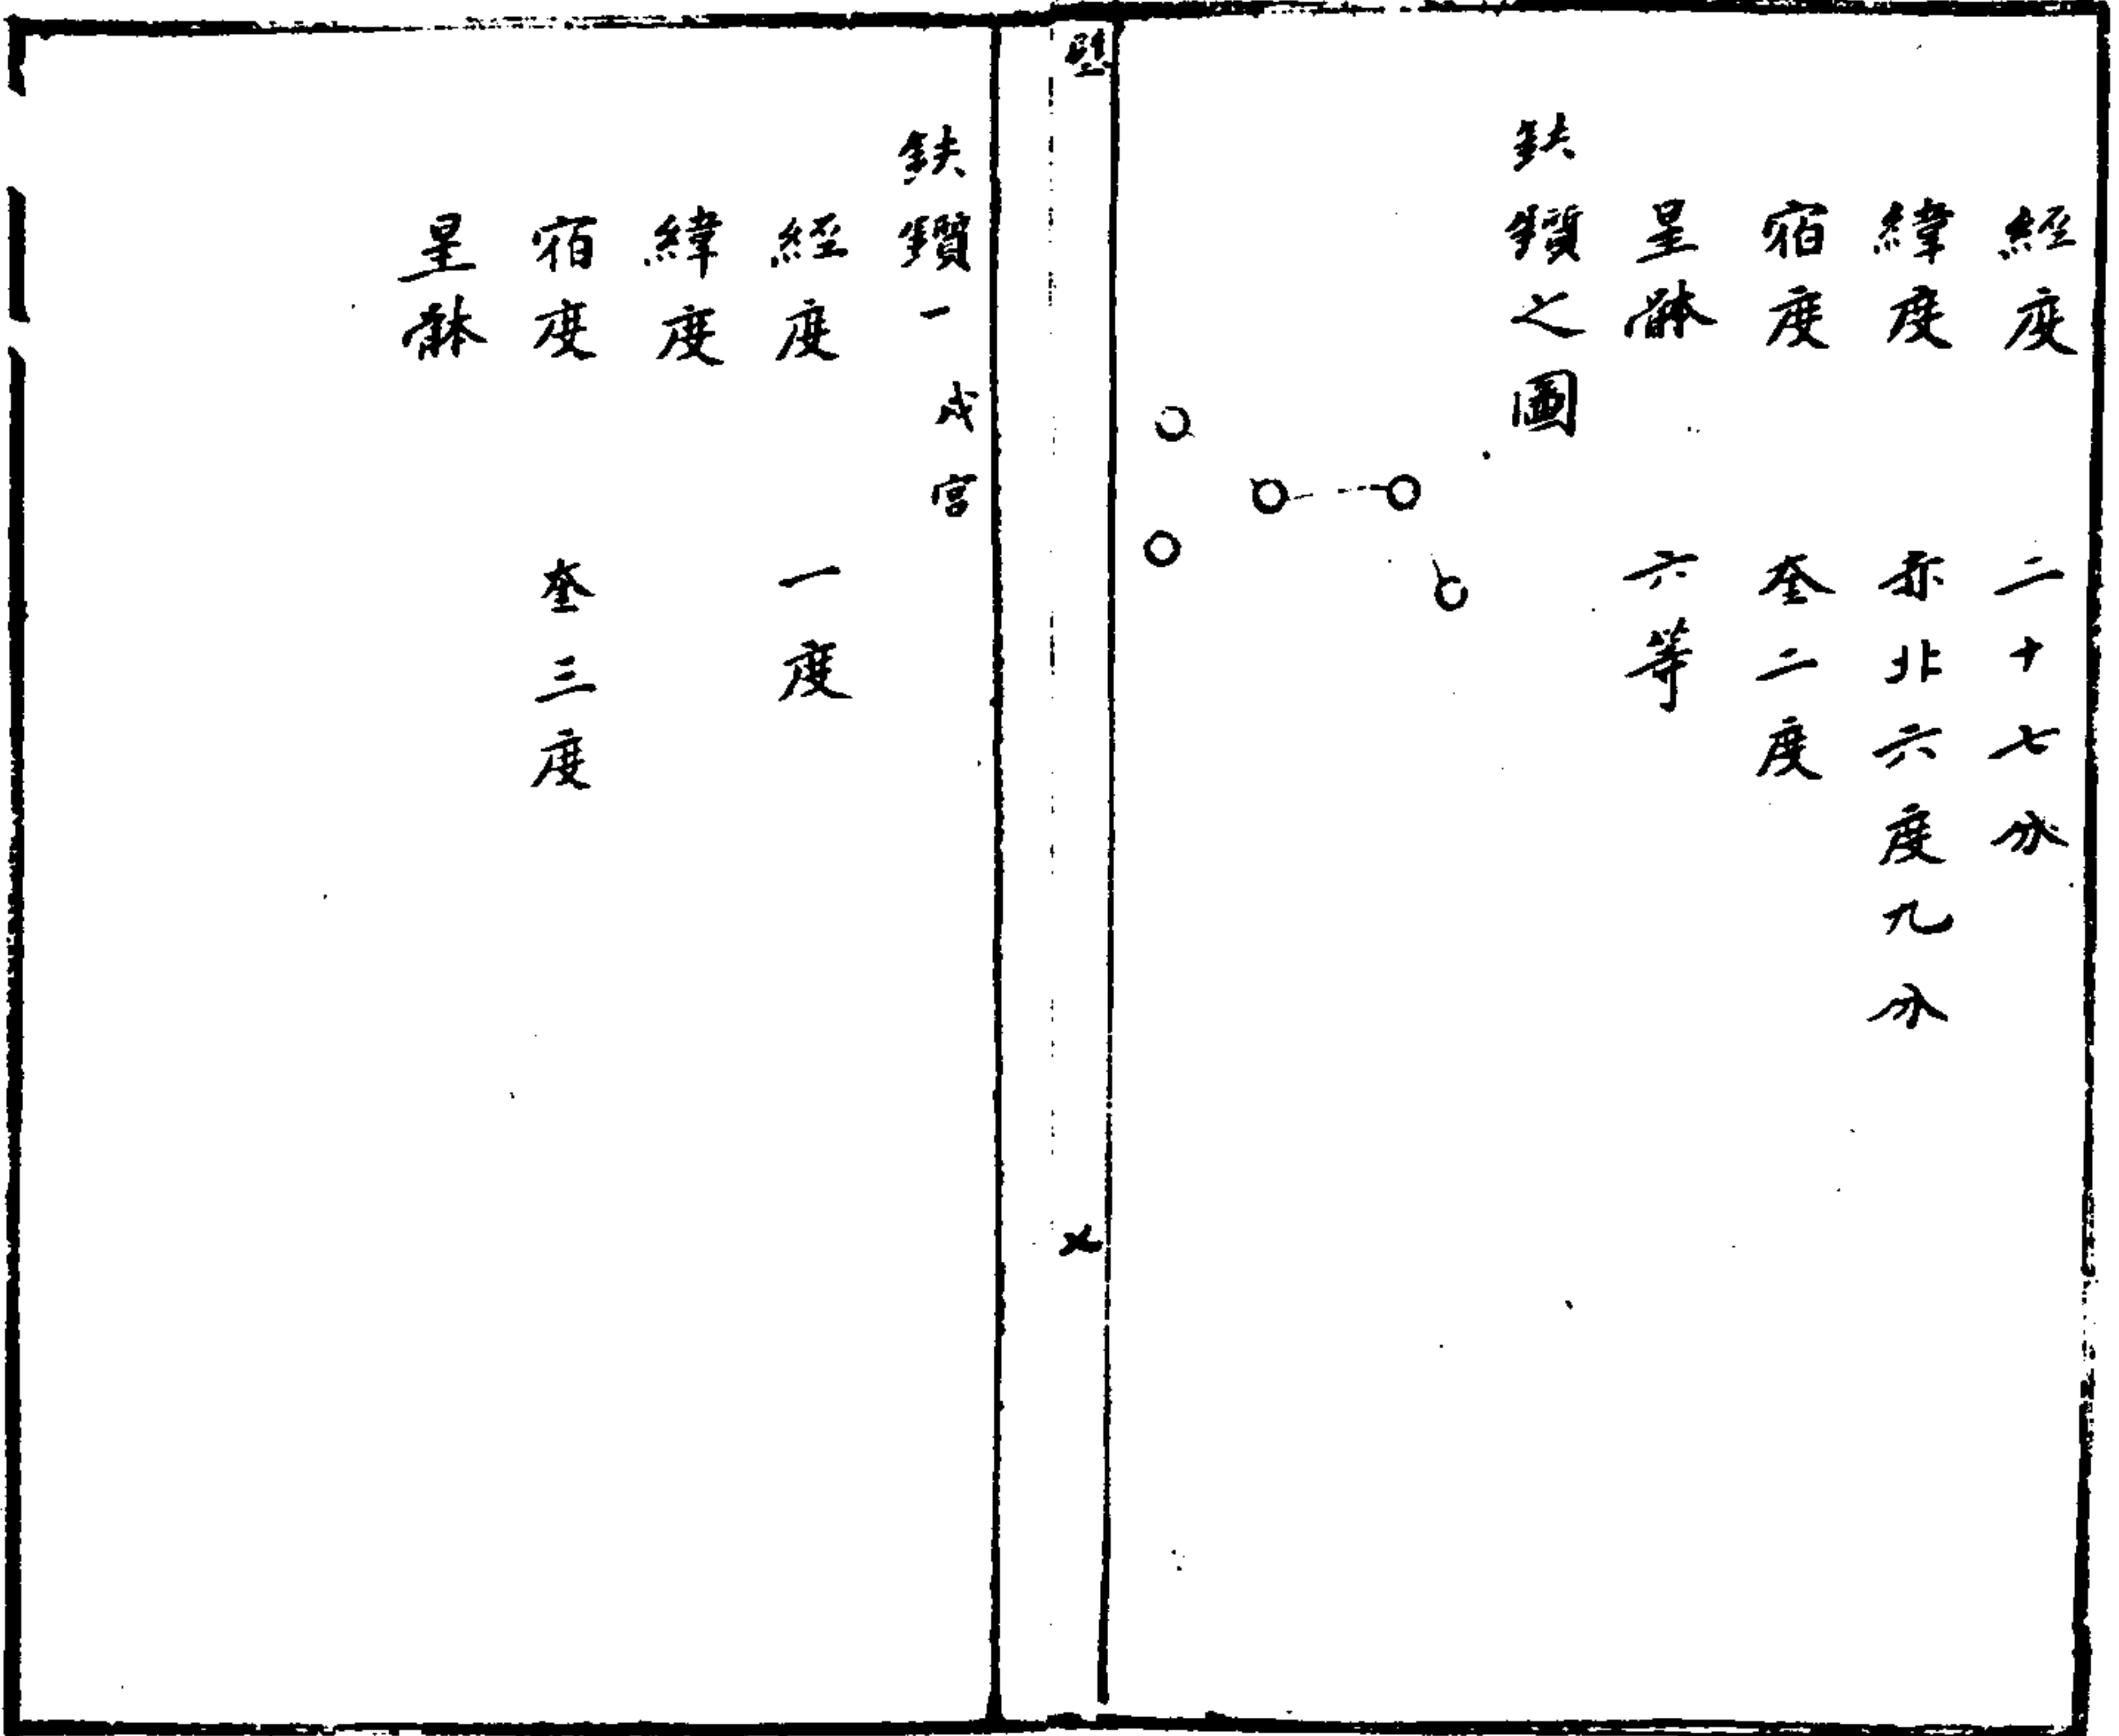 經度 二十七分
緯度 赤北六度九分
宿度 奎二度
星體 六等
鈇鑕之圖
壁
七
鈇鑕一 戌宮
經度 一度
緯度
宿度 奎三度
星體